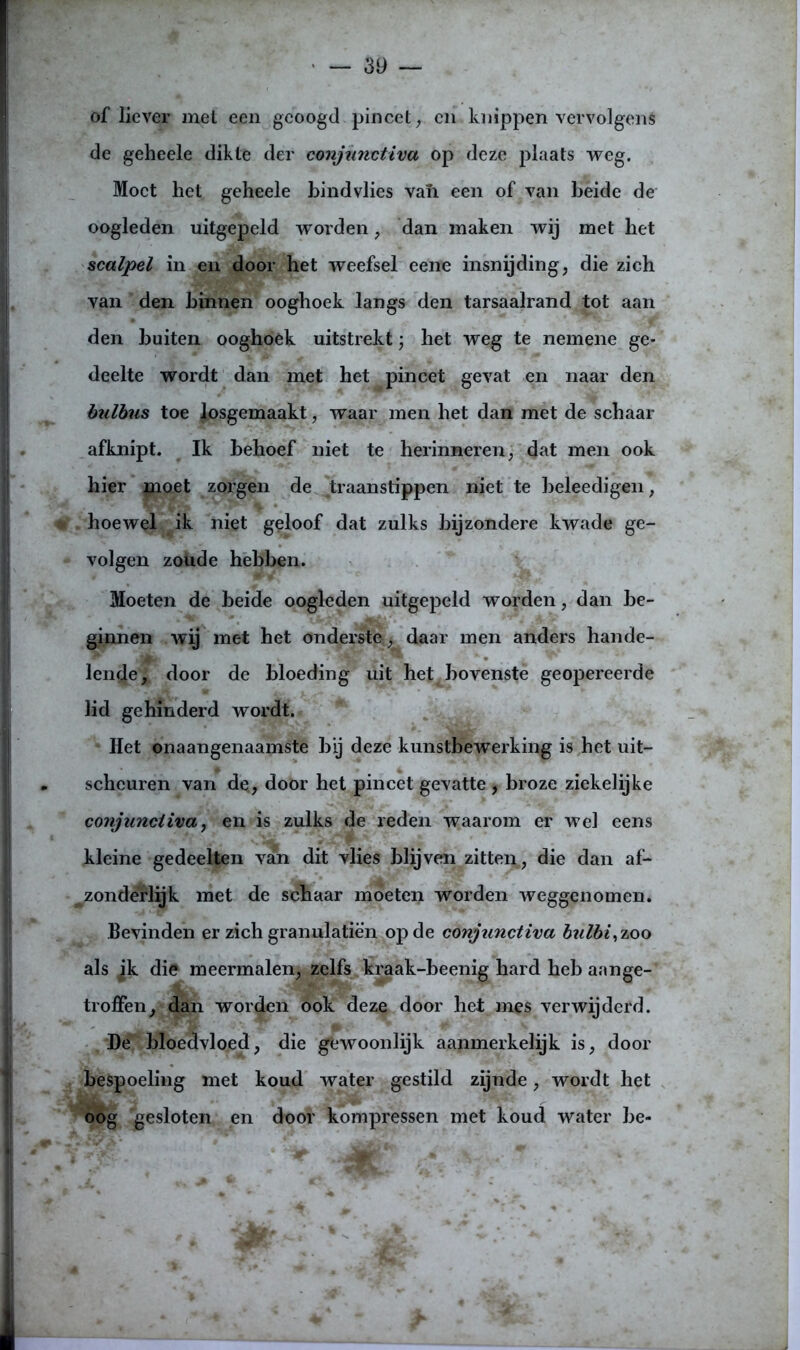 — 39 —
of liever met een geoogd pincet, en knippen vervolgens
de geheele dikte der conjunctiva op deze plaats weg.
Moet het geheele bindvlies van een of van beide de
oogleden uitgepeld worden, dan maken wij met het
scalpel in en door het weefsel eene insnijding, die zich
van den binnen ooghoek langs den tarsaalrand tot aan
den buiten ooghoek uitstrekt; het weg te nemene ge-
deelte wordt dan met het pincet gevat en naar den
bulbus toe losgemaakt, waar men het dan met de schaar
afknipt. Ik behoef niet te herinneren, dat men ook
hier moet zorgen de traanstippen niet te beleedigen,
hoewel ik niet geloof dat zulks bijzondere kwade ge-
volgen zoude hebben.
Moeten de beide oogleden uitgepeld worden, dan be-
ginnen wij met het onderste, daar men anders hande-
lende, door de bloeding uit het bovenste geopereerde
lid gehinderd wordt.
Het onaangenaamste bij deze kunstbewerking is het uit-
scheuren van de, door het pincet gevatte, broze ziekelijke
conjunctiva, en is zulks de reden waarom er wel eens
kleine gedeelten van dit vlies blijven zitten, die dan af-
zonderlijk met de schaar moeten worden weggenomen.
Bevinden er zich granulatiën op de conjunctiva bulbi, zoo
als ik die meermalen, zelfs kraak-beenig hard heb aange-
troffen, dan worden ook deze door het mes verwijderd.
De bloedvloed, die gewoonlijk aanmerkelijk is, door
bespoeling met koud water gestild zijnde, wordt het
oog gesloten en door kompressen met koud water be-